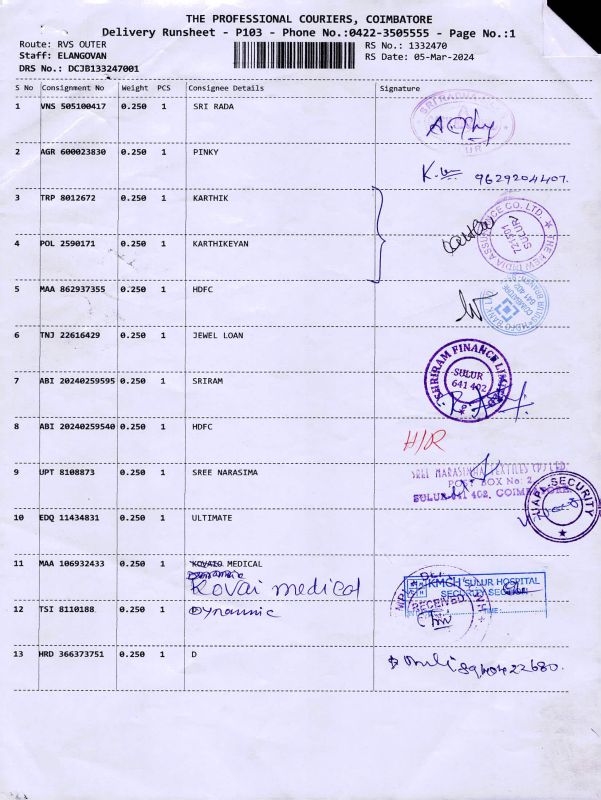 THE PROFESSIONAL COURIERS, COIMBATORE
Delivery Runsheet - P103 - Phone No.:0422-3505555 - Page No.:1
Route: RVS OUTER
RS No.: 1332470
Staff: ELANGOVAN
RS Date: 05-Mar-2024
DRS No.: DCJB133247001
S No Consignment No Weight PCS Consignee Details Signature
1 VNS 505100417 0.250 1 SRI RADA
2 AGR 600023830 0.250 1 PINKY
9629204407.
3 TRP 8012672 0.250 1 KARTHIK
4 POL 2590171 0.250 1 KARTHIKEYAN
THE NEW INDIA ASSURANCE CO. LTD.
721501
SULUR
5 MAA 862937355 0.250 1 HDFC
6 TNJ 22616429 0.250 1 JEWEL LOAN
7 ABI 20240259595 0.250 1 SRIRAM
SHRIRAM FINANCE LIMITED
SULUR
641 402
8 ABI 20240259540 0.250 1 HDFC
H/R
9 UPT 8108873 0.250 1 SREE NARASIMA
SREE NARASIMHA TEXTILES (P) LTD.
POST BOX No: 2
SULUR 641 402, COIMBATORE.
SECURITY
10 EDQ 11434831 0.250 1 ULTIMATE
11 MAA 106932433 0.250 1 KOVAIO MEDICAL
Kovai medical
KMCH SULUR HOSPITAL
SECURITY SECTION
RECEIVED
TIME:
12 TSI 8110188 0.250 1 Dynamic
13 HRD 366373751 0.250 1 D
8940422680.